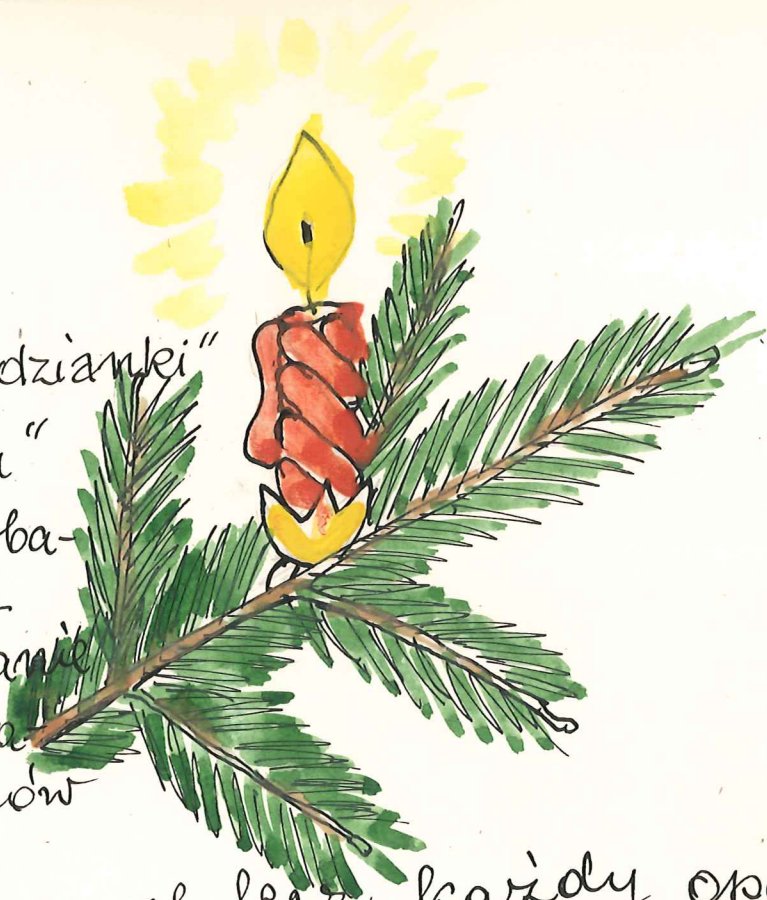 dzianki"
"
ba-
anie
a-
ów
każdy op